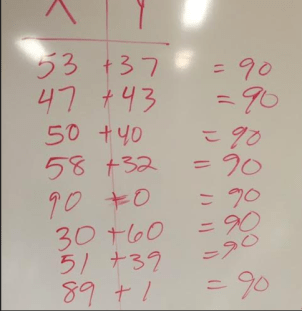 X Y
53 +37 = 90
47 +43 = 90
50 +40 = 90
58 +32 = 90
90 +0 = 90
30 +60 = 90
51 +39 = 90
89 +1 = 90